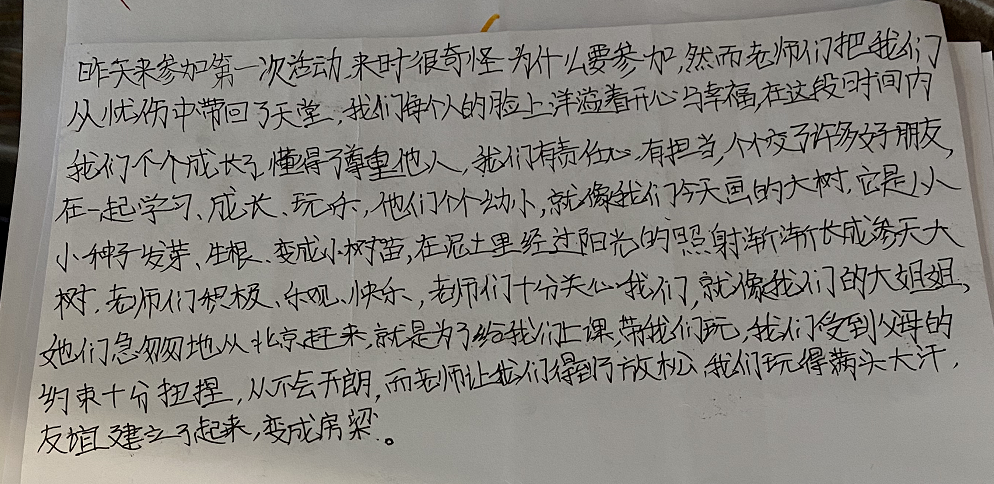 昨天来参加第一次活动,来时很奇怪为什么要参加,然而老师们把我们
从忧伤中带回了天堂,我们每个人的脸上洋溢着开心与幸福,在这段时间内
我们个个成长了,懂得了尊重他人,我们有责任心、有担当,个个交了许多好朋友,
在一起学习、成长、玩乐,他们个个幼小,就像我们今天画的大树,它是从
小种子发芽、生根、变成小树苗,在泥土里经过阳光的照射渐渐长成参天大
树,老师们积极、乐观、快乐,老师们十分关心我们,就像我们的大姐姐,
她们急匆匆地从北京赶来,就是为了给我们上课,带我们玩,我们受到父母的
约束十分扭捏,从不会开朗,而老师让我们得到了放松,我们玩得满头大汗,
友谊建立了起来,变成房梁。